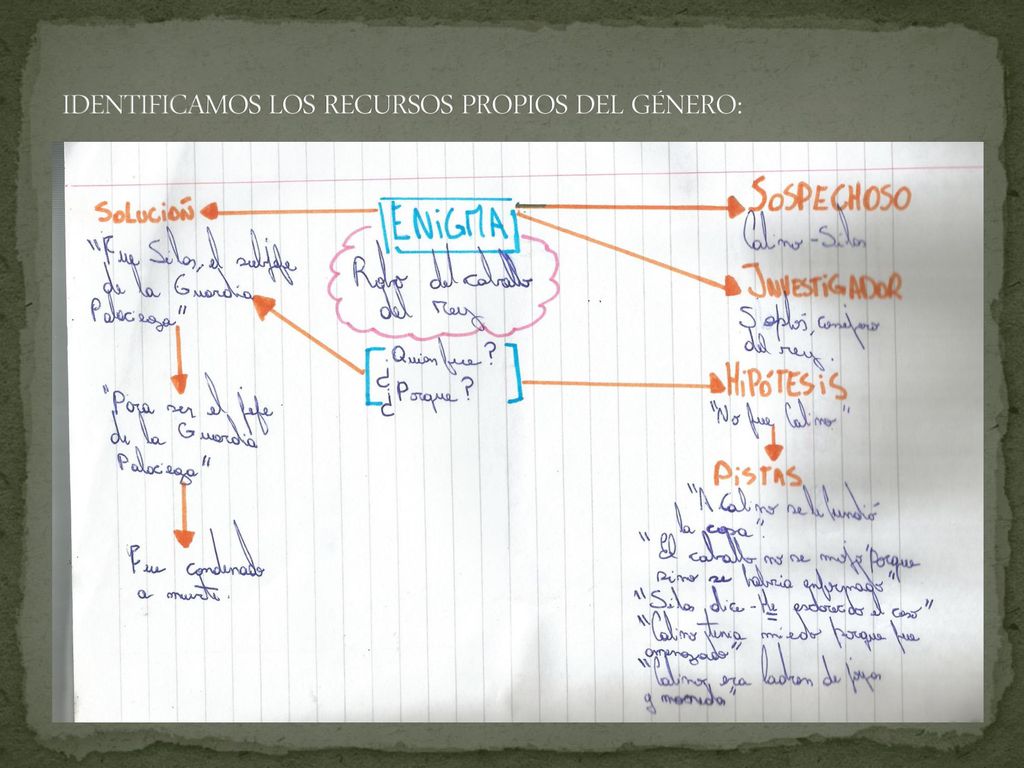 IDENTIFICAMOS LOS RECURSOS PROPIOS DEL GÉNERO:
SOLUCION
"Fue Silos, el subjefe
de la Guardia
Palaciega"
"Para ser el jefe
de la Guardia
Palaciega"
Fue condenado
a muerte.
ENIGMA
Robo del caballo
del rey
¿Quien fue?
¿Porque?
SOSPECHOSO
Calino - Silos
INVESTIGADOR
consejero
del rey.
HIPÓTESIS
"No fue Calino"
PISTAS
"A Calino se le fundió
la copa".
"El caballo no se mojó porque
sino se habria enfermado"
"Silos dice - He esclarecido el caso"
"Calino tenia miedo porque fue
amenazado"
"Calino, era ladron de joyas
y moneda"